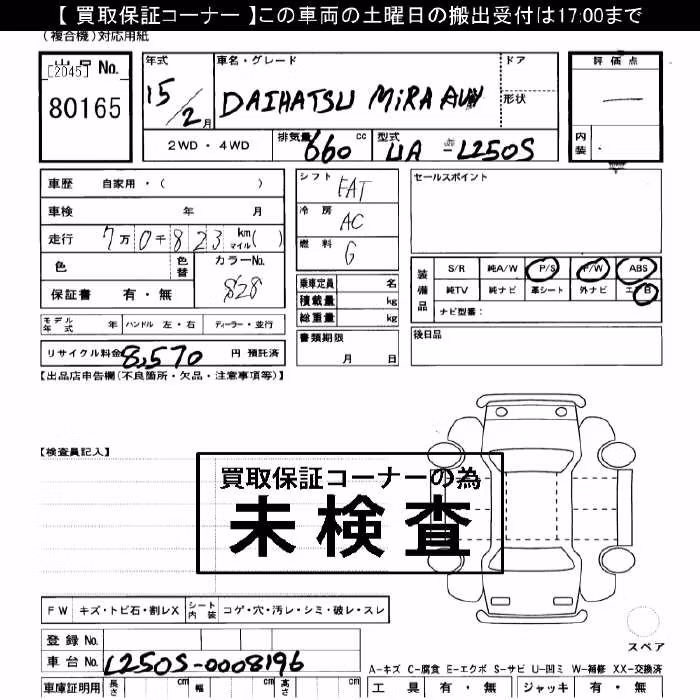 【 買取保証コーナー 】この車両の土曜日の搬出受付は17:00まで
(複合機)対応用紙
出品No.
[2045]
80165
年式
15/2月
車名・グレード
DAIHATSU MiRA
ドア
形状
評価点
内装
2WD・4WD
排気量 660 cc
型式 UA-L250S
車歴 自家用・( )
車検 年 月
走行 7万0千823 km マイル( )
色
色替
カラーNo.
S28
保証書 有・無
モデル年式 年 ハンドル 左・右 ディーラー・並行
リサイクル料金 8,570 円 預託済
シフト FAT
冷房 AC
燃料 G
乗車定員 名
積載量 kg
総重量 kg
書類期限
月 日
セールスポイント
装備品
S/R 純A/W P/S P/W ABS
純TV 純ナビ 革シート 外ナビ エアB
ナビ型番:
後日品
【出品店申告欄(不良箇所・欠品・注意事項等)】
【検査員記入】
買取保証コーナーの為
未検査
FW キズ・トビ石・割レX シート内装 コゲ・穴・汚レ・シミ・破レ・スレ
登録No.
車台No. L250S-0008196
車庫証明用 長さ cm 幅 cm 高さ cm
スペア
A-キズ C-腐食 E-エクボ S-サビ U-凹ミ W-補修 XX-交換済
工具 有・無 ジャッキ 有・無